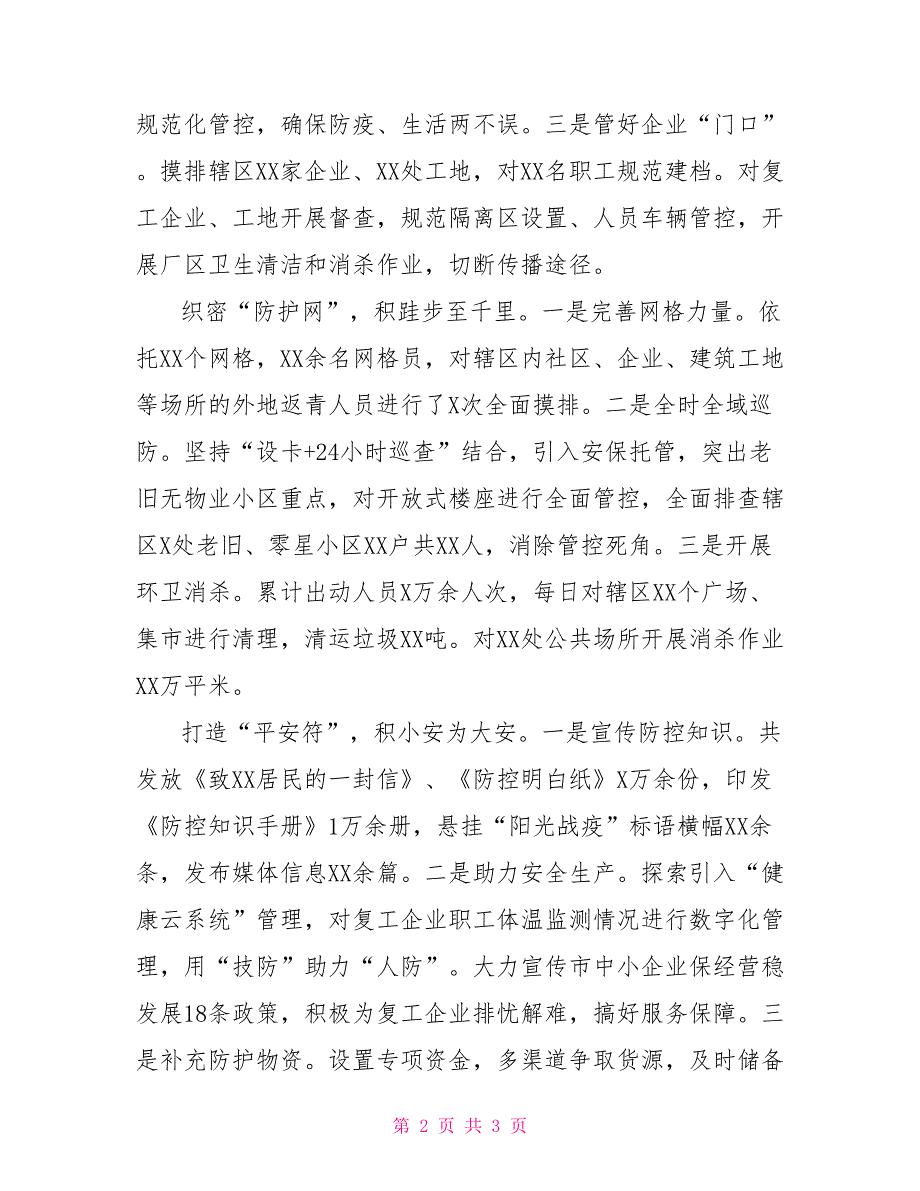 规范化管控，确保防疫、生活两不误。三是管好企业“门口”
。摸排辖区XX家企业、XX处工地，对XX名职工规范建档。对复
工企业、工地开展督查，规范隔离区设置、人员车辆管控，开
展厂区卫生清洁和消杀作业，切断传播途径。
织密“防护网”，积跬步至千里。一是完善网格力量。依
托XX个网格，XX余名网格员，对辖区内社区、企业、建筑工地
等场所的外地返青人员进行了X次全面摸排。二是全时全域巡
防。坚持“设卡+24小时巡查”结合，引入安保托管，突出老
旧无物业小区重点，对开放式楼座进行全面管控，全面排查辖
区X处老旧、零星小区XX户共XX人，消除管控死角。三是开展
环卫消杀。累计出动人员X万余人次，每日对辖区XX个广场、
集市进行清理，清运垃圾XX吨。对XX处公共场所开展消杀作业
XX万平米。
打造“平安符”，积小安为大安。一是宣传防控知识。共
发放《致XX居民的一封信》、《防控明白纸》X万余份，印发
《防控知识手册》1万余册，悬挂“阳光战疫”标语横幅XX余
条，发布媒体信息XX余篇。二是助力安全生产。探索引入“健
康云系统”管理，对复工企业职工体温监测情况进行数字化管
理，用“技防”助力“人防”。大力宣传市中小企业保经营稳
发展18条政策，积极为复工企业排忧解难，搞好服务保障。三
是补充防护物资。设置专项资金，多渠道争取货源，及时储备
第 2 页 共 3 页